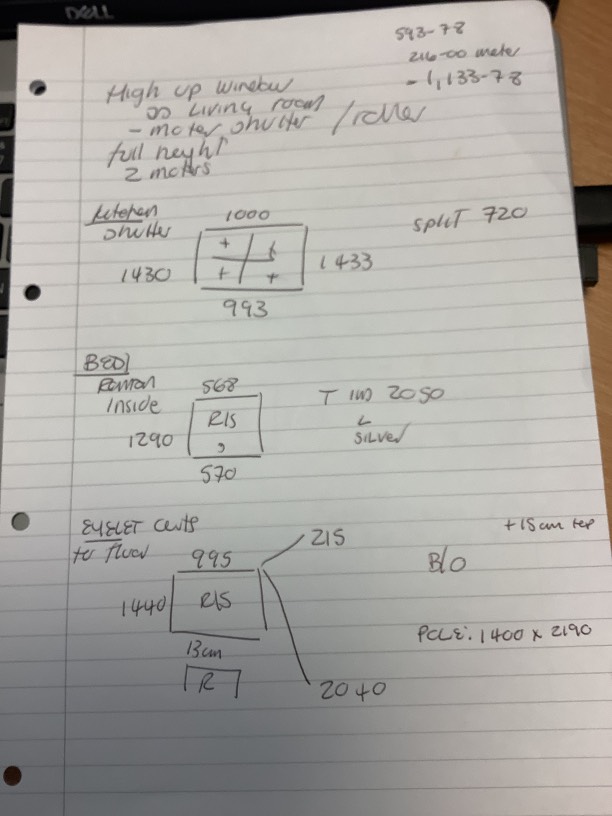 DELL
593-78
216-00 meter
- 1,133-78
High up window
living room
- moter shutter / roller
full height
2 moters
kitchen
shutter
1000
split 720
1430
+ +
+ +
1433
993
BED1
Roman
Inside
568
T 2050
R/S
SILVER
1290
570
EYELET
to floor
+15cm
995
215
B/O
1440
R/S
POLE: 1400 x 2190
13cm
R
2040